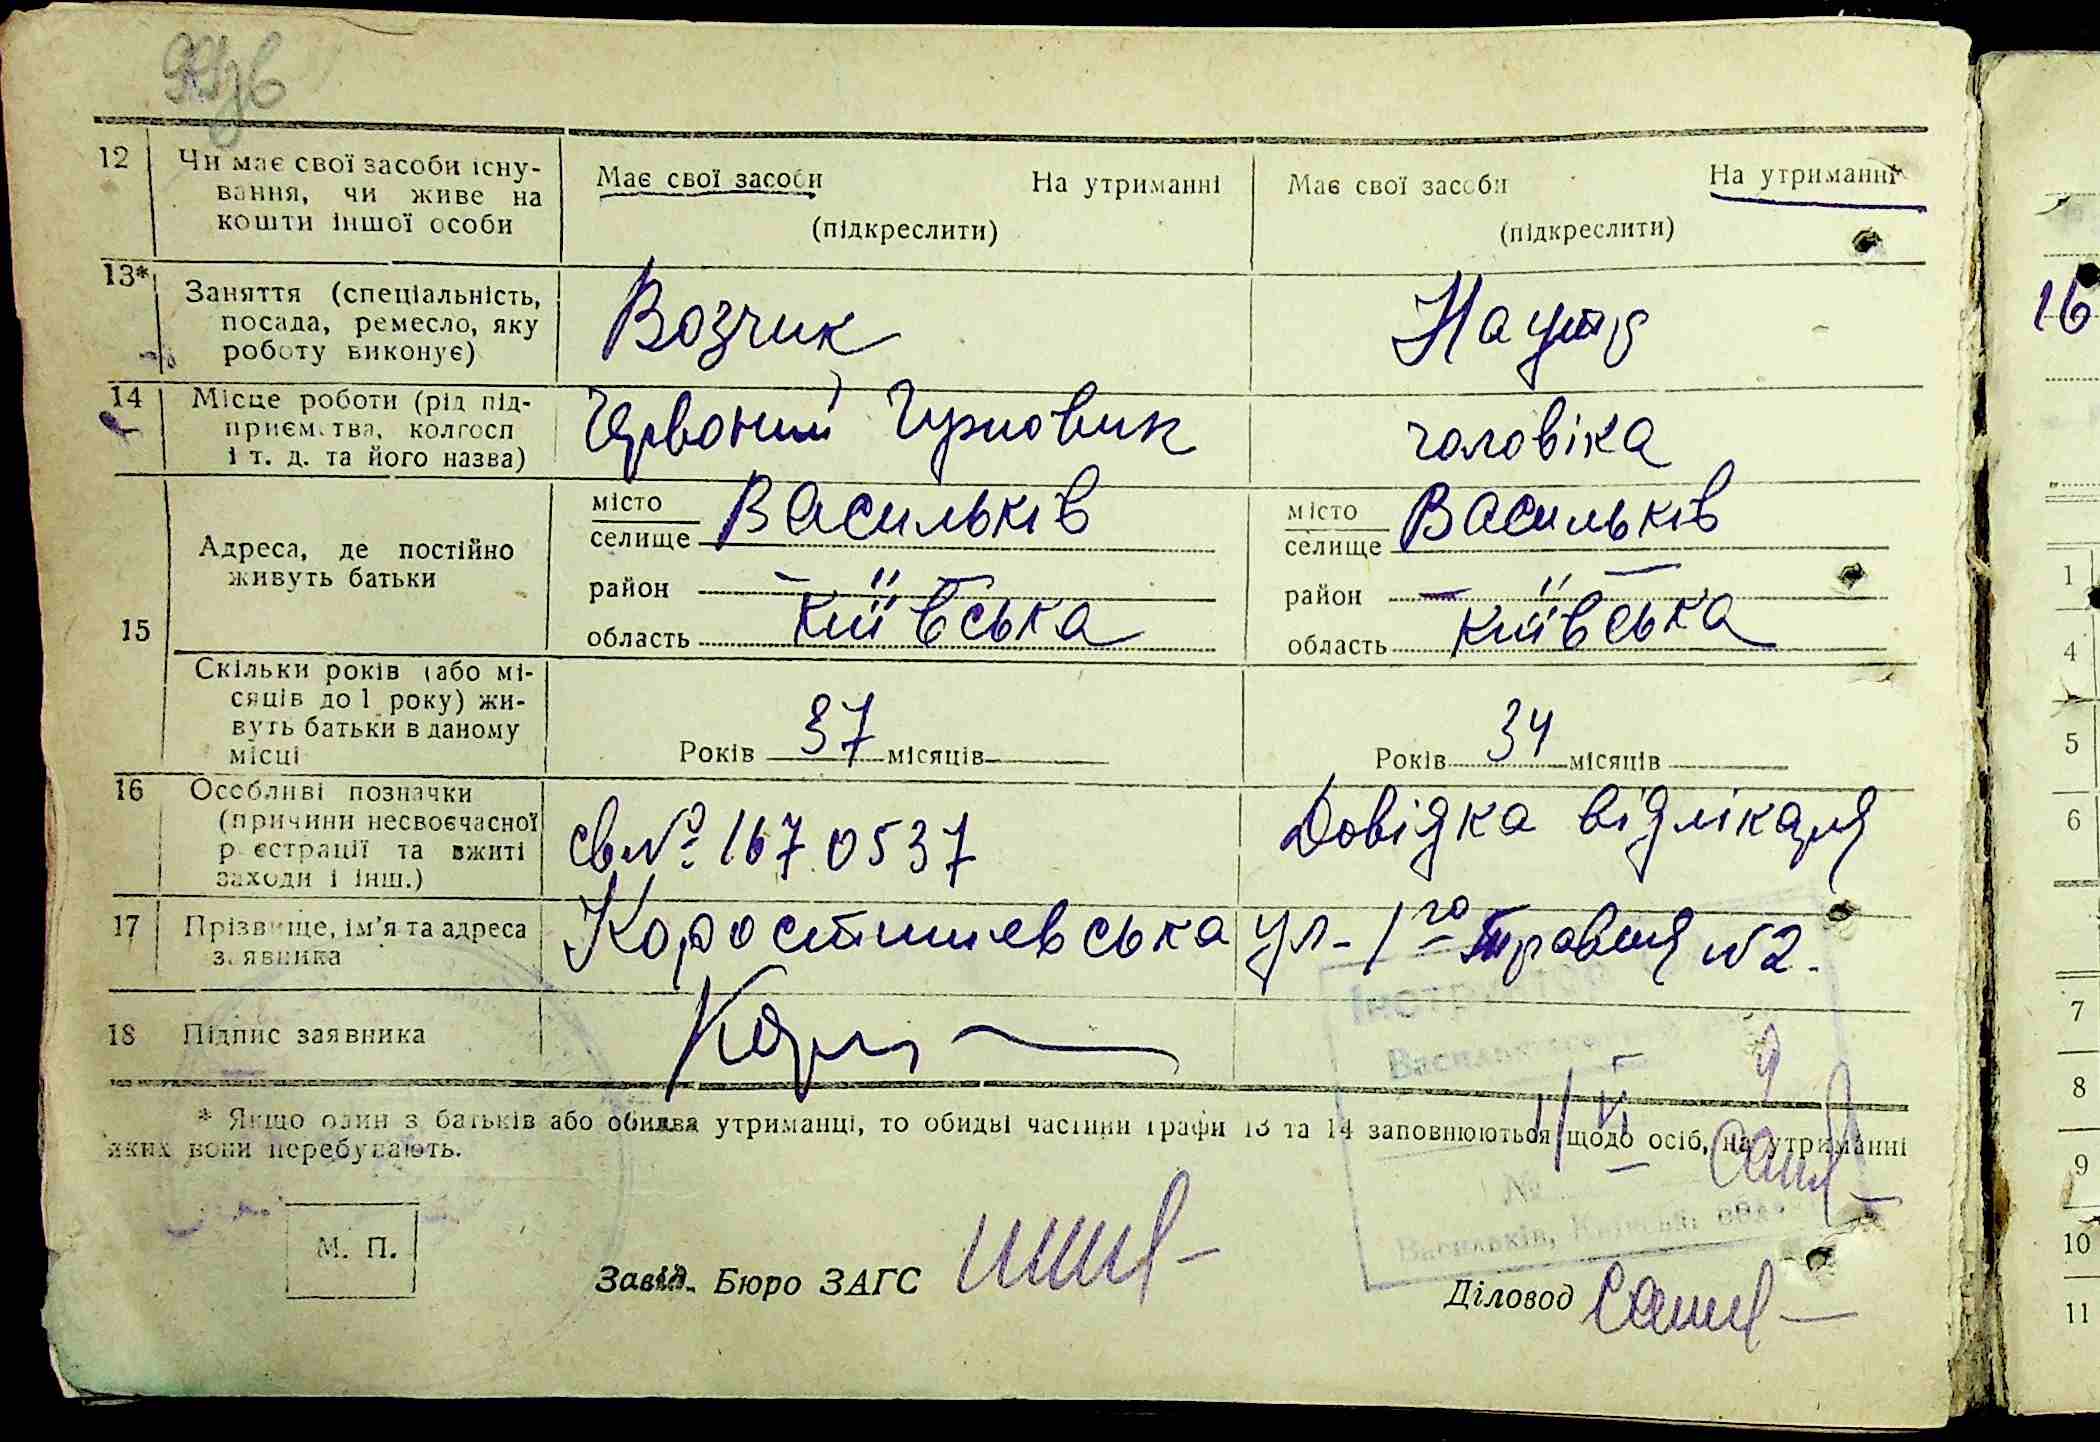 12 Чи має свої засоби існу-
вання, чи живе на
кошти іншої особи
Має свої засоби На утриманні
(підкреслити)
Має свої засоби На утриманні
(підкреслити)
13* Заняття (спеціальність,
посада, ремесло, яку
роботу виконує)
Возчик
На утр
14 Місце роботи (рід під-
приємства, колгосп
і т. д. та його назва)
Червоний
чоловіка
15 Адреса, де постійно
живуть батьки
місто
селище Васильків
район —
область Київська
місто
селище Васильків
район —
область Київська
Скільки років (або мі-
сяців до 1 року) жи-
вуть батьки в даному
місці
Років 37 місяців
Років 34 місяців
16 Особливі позначки
(причини несвоєчасної
реєстрації та вжиті
заходи і інш.)
св № 1670537
Довідка від лікаря
17 Прізвище, ім'я та адреса
заявника
Коростишевська ул. 1го Травня N 2.
18 Підпис заявника
* Якщо один з батьків або обидва утриманці, то обидві частини графи 13 та 14 заповнюються щодо осіб, на утриманні
яких вони перебувають.
М. П.
Завід. Бюро ЗАГС
Діловод
Васильків, Київської обл.
№
16
1
4
5
6
7
8
9
10
11